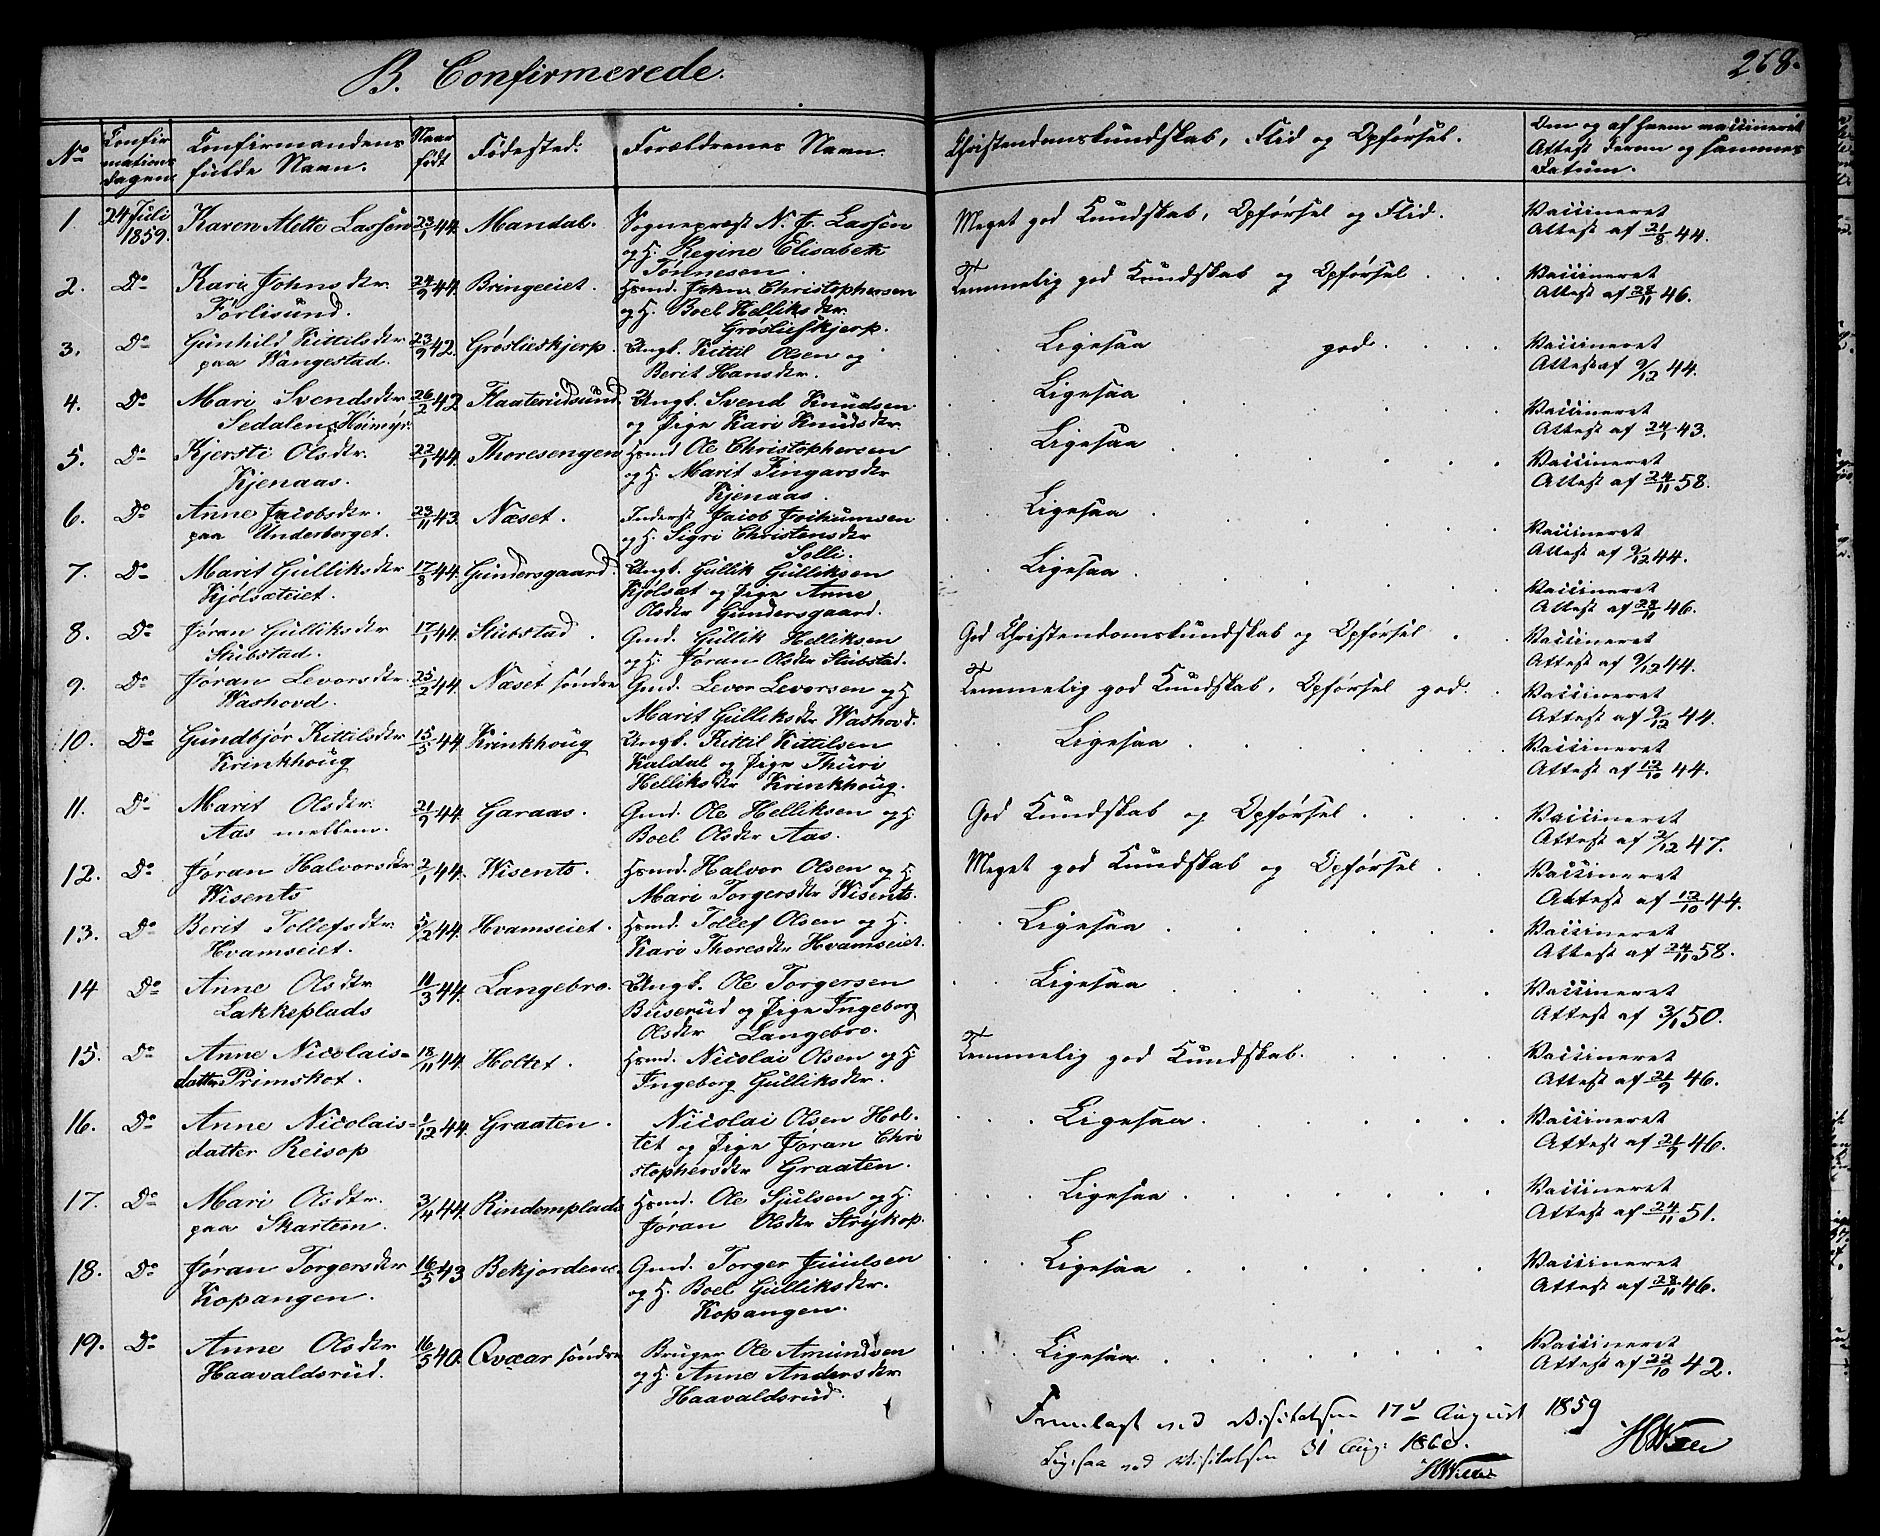 B. Confirmerede.
268.
No
Confir
mations
dagen.
Confirmandens
fulde Navn.
Naar
født
Fødested.
Forældrenes Navn.
Christendomskundskab, Flid og Opførsel.
Om og af hvem vaccineret
Attest derom og sammes
Datum.
1 24 Juli 1859. Karen Mette Lassen 23/1 44. Mandal. Sognepræst N. J. Lassen Meget god Kundskab, Opførsel og Flid. Vaccineret
og H. Regine Elisabeth Attest af 21/8 44.
Tønnesen.
2. Do Kari Johnsdtr. 24/9 44. Bringeeiet. Hsmd. John Christophersen Temmelig god Kundskab og Opførsel Vaccineret
Førlisund. og H. Boel Helliksdtr. Attest af 28/11 46.
Grøslieskjerp.
3. Do Gunhild Kittilsdtr 23/9 42. Grøslieskjerp. Ungk. Kittil Olsen og Ligesaa god. Vaccineret
paa Wangestad. Berit Hansdtr. Attest af 9/12 44.
4. Do Mari Svendsdtr 26/2 42 Flaaterudsund. Ungk. Svend Knudsen Ligesaa Vaccineret
Sedalen, Höimyr. og Pige Kari Knudsdtr. Attest af 24/1 43.
5. Do Kjersti Olsdtr. 22/1 44. Thoresengen Hsmd Ole Christophersen Ligesaa Vaccineret
Kjenaas. og H. Marit Fingarsdtr Attest af 24/11 58.
Kjenaas.
6. Do Anne Jacobsdtr. 23/11 43. Næset. Inderst Jacob Jochumsen Ligesaa Vaccineret
paa Underberget. og H. Sigri Christensdtr Attest af 9/12 44.
Solli.
7. Do Marit Gulliksdtr 17/8 44. Gundersgaard. Ungk. Gullik Gulliksen Ligesaa Vaccineret
Kjølsæteiet. Kjølsæt og Pige Anne Attest af 28/11 46.
Olsdtr Gundersgaard.
8. Do Jøran Gulliksdtr 17/1 44. Stubstad. Gmd. Gullik Helliksen God Christendomskundskab og Opførsel Vaccineret
Stubstad. og H. Jøran Olsdtr Stubstad. Attest af 9/12 44.
9. Do Jøran Levorsdtr. 25/2 44. Næset søndre Gmd. Levor Levorsen og H Temmelig god Kundskab, Opførsel god. Vaccineret
Washovd. Marit Gulliksdtr Washovd. Attest af 9/12 44.
10. Do Gundbjør Kittilsdtr 15/5 44. Krinkhoug Ungk. Kittil Kittilsen Ligesaa Vaccineret
Krinkhoug Kaldal og Pige Thuri Attest af 12/10 44.
Helliksdtr Krinkhoug.
11. Do Marit Olsdtr. 21/9 44. Garaas. Gmd. Ole Helliksen og H. God Kundskab og Opførsel Vaccineret
Aas mellem. Boel Olsdtr Aas. Attest af 2/12 47.
12. Do Jøran Halvorsdtr 2/1 44. Wisents. Hsmd. Halvor Olsen og H. Meget god Kundskab og Opførsel Vaccineret
Wisents Mari Torgersdtr Wisents. Attest af 12/10 44.
13. Do Berit Tollefsdtr. 5/2 44. Hvamseiet. Hsmd. Tollef Olsen og H. Ligesaa Vaccineret
Hvamseiet. Kari Thoresdtr Hvamseiet. Attest af 24/11 58.
14 Do Anne Olsdtr 11/3 44. Langebro. Ungk. Ole Torgersen Ligesaa Vaccineret
Lakkeplads Buserud og Pige Ingeborg Attest af 3/1 50.
Olsdtr Langebro.
15. Do Anne Nicolais= 18/11 44. Holtet. Hsmd. Nicolai Olsen og H. Temmelig god Kundskab. Vaccineret
datter Primskot. Ingeborg Gulliksdtr. Attest af 21/9 46.
16. Do Anne Nicolais= 1/12 44. Graaten. Nicolai Olsen Hol- Ligesaa Vaccineret
datter Reisop tet og Pige Jøran Chri Attest af 21/9 46.
stophersdtr Graaten.
17. Do Mari Olsdtr. 3/4 44. Rindemplads Hsmd. Ole Sjulsen og H. Ligesaa Vaccineret
paa Skartem. Jøran Olsdtr Strykop. Attest af 24/11 51.
18. Do Jøran Torgersdtr 16/5 43 Bekjordene. Gmd. Torger Juulsen Ligesaa Vaccineret
Kopangen. og H. Boel Gulliksdtr. Attest af 28/11 46.
Kopangen.
19. Do Anne Olsdtr 16/5 40. Qvaar søndre Bruger Ole Amundsen Ligesaa Vaccineret
Haavaldsrud. og H. Anne Andersdtr Attest af 22/10 42.
Haavaldsrud.
Fremlagt ved Visitatsen 17d August 1859
Ligesaa ved Visitatsen 31 Aug: 1860.